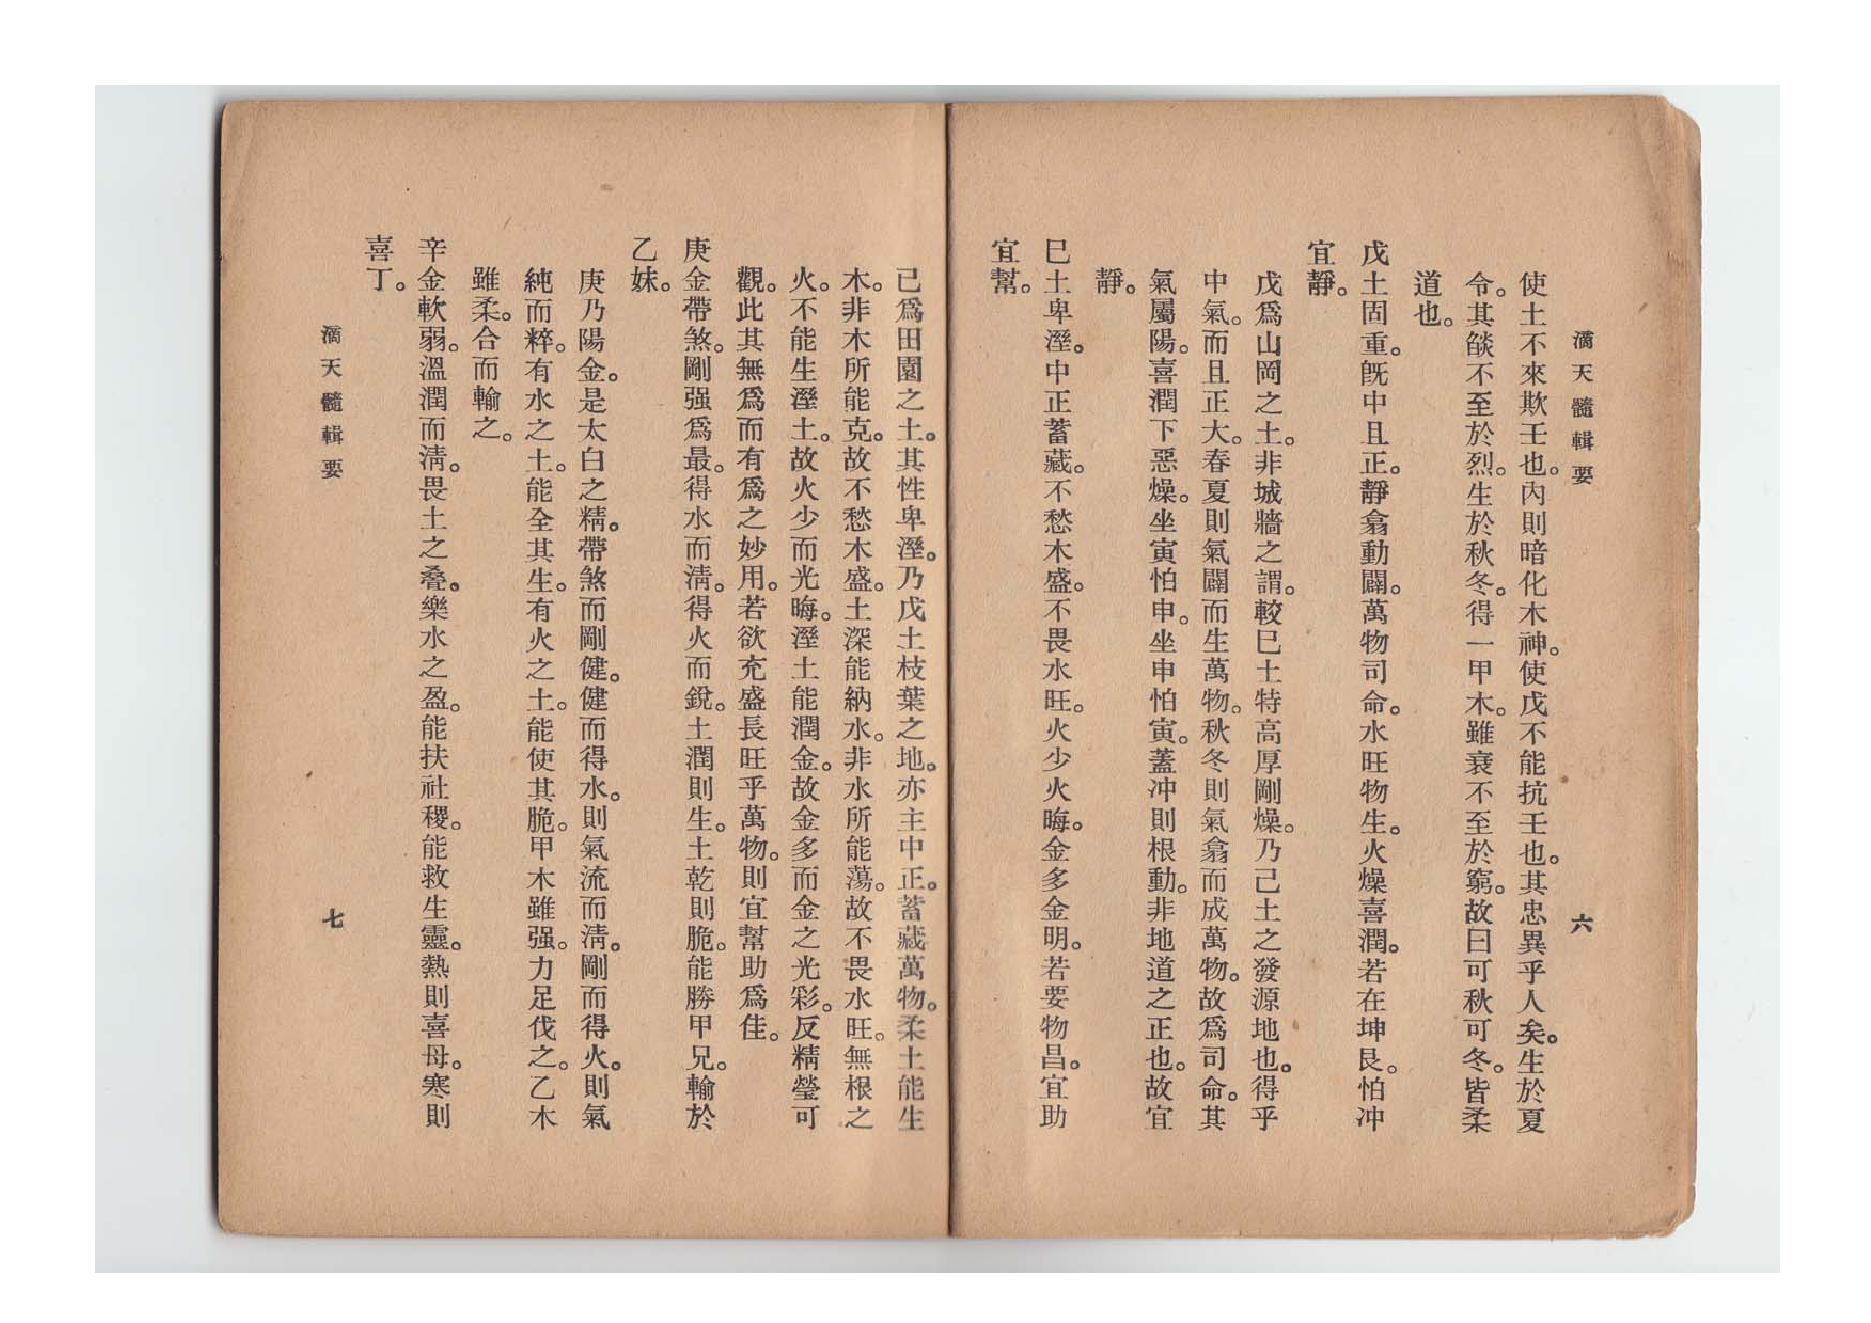 滴天髓輯要
六
使土不來欺壬也。內則暗化木神。使戊不能抗壬也。其忠異乎人矣。生於夏
令。其燄不至於烈。生於秋冬。得一甲木。雖衰不至於窮。故曰可秋可冬。皆柔
道也。
戊土固重。旣中且正。靜翕動闢。萬物司命。水旺物生。火燥喜潤。若在坤艮。怕冲
宜靜。
戊爲山岡之土。非城牆之謂。較巳土特高厚剛燥。乃己土之發源地也。得乎
中氣。而且正大。春夏則氣闢而生萬物。秋冬則氣翕而成萬物。故爲司命。其
氣屬陽。喜潤下惡燥。坐寅怕申。坐申怕寅。蓋冲則根動。非地道之正也。故宜
靜。
巳土卑溼。中正蓄藏。不愁木盛。不畏水旺。火少火晦。金多金明。若要物昌。宜助
宜幫。
己爲田園之土。其性卑溼。乃戊土枝葉之地。亦主中正。蓄藏萬物。柔土能生
木。非木所能克。故不愁木盛。土深能納水。非水所能蕩。故不畏水旺。無根之
火。不能生溼土。故火少而光晦。溼土能潤金。故金多而金之光彩。反精瑩可
觀。此其無爲而有爲之妙用。若欲充盛長旺乎萬物。則宜幫助爲佳。
庚金帶煞。剛强爲最。得水而淸。得火而銳。土潤則生。土乾則脆。能勝甲兄。輸於
乙妹。
庚乃陽金。是太白之精。帶煞而剛健。健而得水。則氣流而淸。剛而得火。則氣
純而粹。有水之土。能全其生。有火之土。能使其脆。甲木雖强。力足伐之。乙木
雖柔。合而輸之。
辛金軟弱。溫潤而淸。畏土之疊。樂水之盈。能扶社稷。能救生靈。熱則喜母。寒則
喜丁。
滴天髓輯要
七